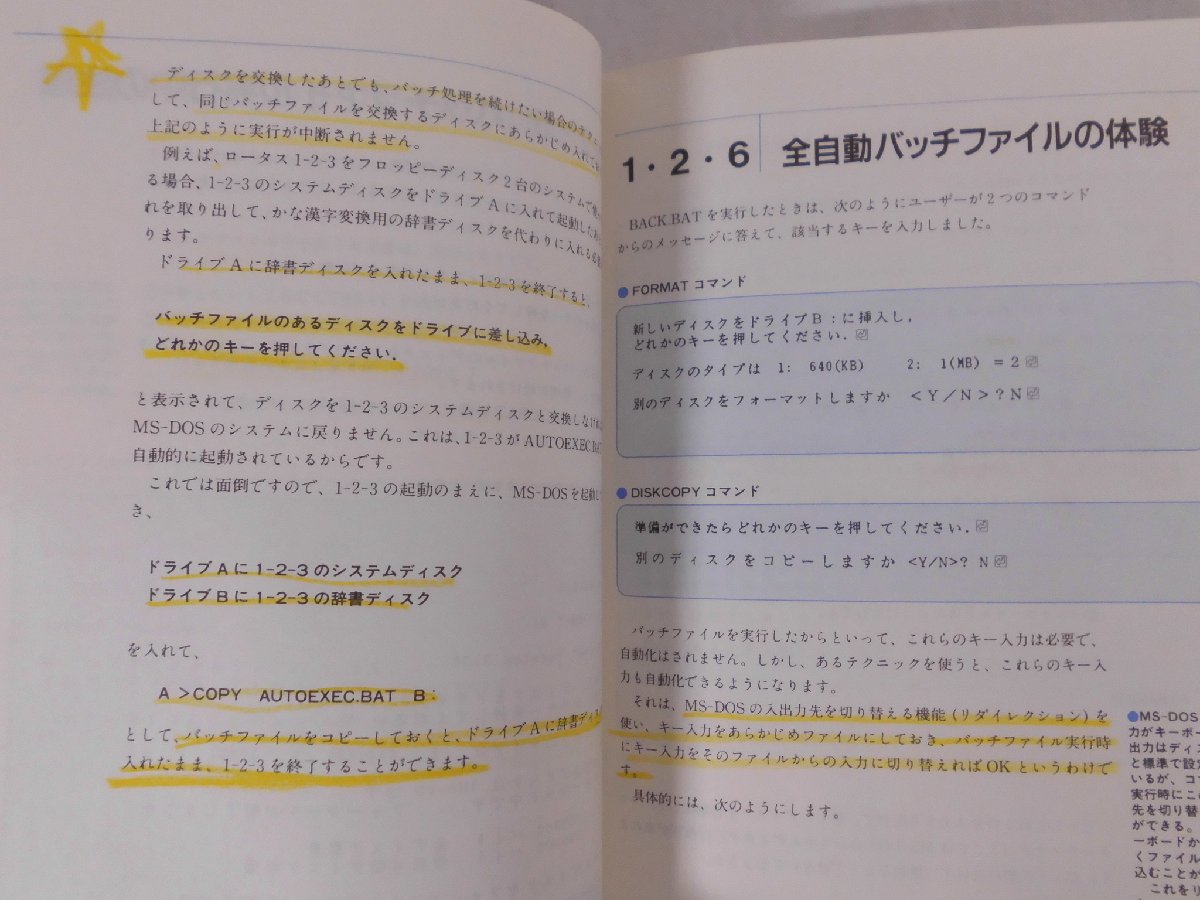 ディスクを交換したあとでも、バッチ処理を続けたい場合のテクニ
して、同じバッチファイルを交換するディスクにあらかじめ入れて
上記のように実行が中断されません。
例えば、ロータス1-2-3をフロッピーディスク2台のシステムで
る場合、1-2-3のシステムディスクをドライブAに入れて起動した
れを取り出して、かな漢字変換用の辞書ディスクを代わりに入れる
ります。
ドライブAに辞書ディスクを入れたまま、1-2-3を終了すると、
バッチファイルのあるディスクをドライブに差し込み,
どれかのキーを押してください.
と表示されて、ディスクを1-2-3のシステムディスクと交換しなけ
MS-DOSのシステムに戻りません。これは、1-2-3がAUTOEXEC.BAT
自動的に起動されているからです。
これでは面倒ですので、1-2-3の起動のまえに、MS-DOSを起動し
き、
ドライブAに1-2-3のシステムディスク
ドライブBに1-2-3の辞書ディスク
を入れて、
A >COPY AUTOEXEC.BAT B:
として、バッチファイルをコピーしておくと、ドライブAに辞書ディス
入れたまま、1-2-3を終了することができます。
1・2・6 全自動バッチファイルの体験
BACK.BATを実行したときは、次のようにユーザーが2つのコマンド
からのメッセージに答えて、該当するキーを入力しました。
●FORMATコマンド
新しいディスクをドライブB:に挿入し,
どれかのキーを押してください.⏎
ディスクのタイプは 1: 640(KB) 2: 1(MB) =2⏎
別のディスクをフォーマットしますか <Y/N>?N⏎
●DISKCOPYコマンド
準備ができたらどれかのキーを押してください.⏎
別のディスクをコピーしますか <Y/N>? N⏎
バッチファイルを実行したからといって、これらのキー入力は必要で、
自動化はされません。しかし、あるテクニックを使うと、これらのキー入
力も自動化できるようになります。
それは、MS-DOSの入出力先を切り替える機能(リダイレクション)を
使い、キー入力をあらかじめファイルにしておき、バッチファイル実行時
にキー入力をそのファイルからの入力に切り替えればOKというわけで
す。
具体的には、次のようにします。
●MS-DOS
力がキーボー
出力はディス
と標準で設定
いるが、コ
実行時にこ
先を切り替
ができる。
ーボードか
くファイル
込むことが
これをリ